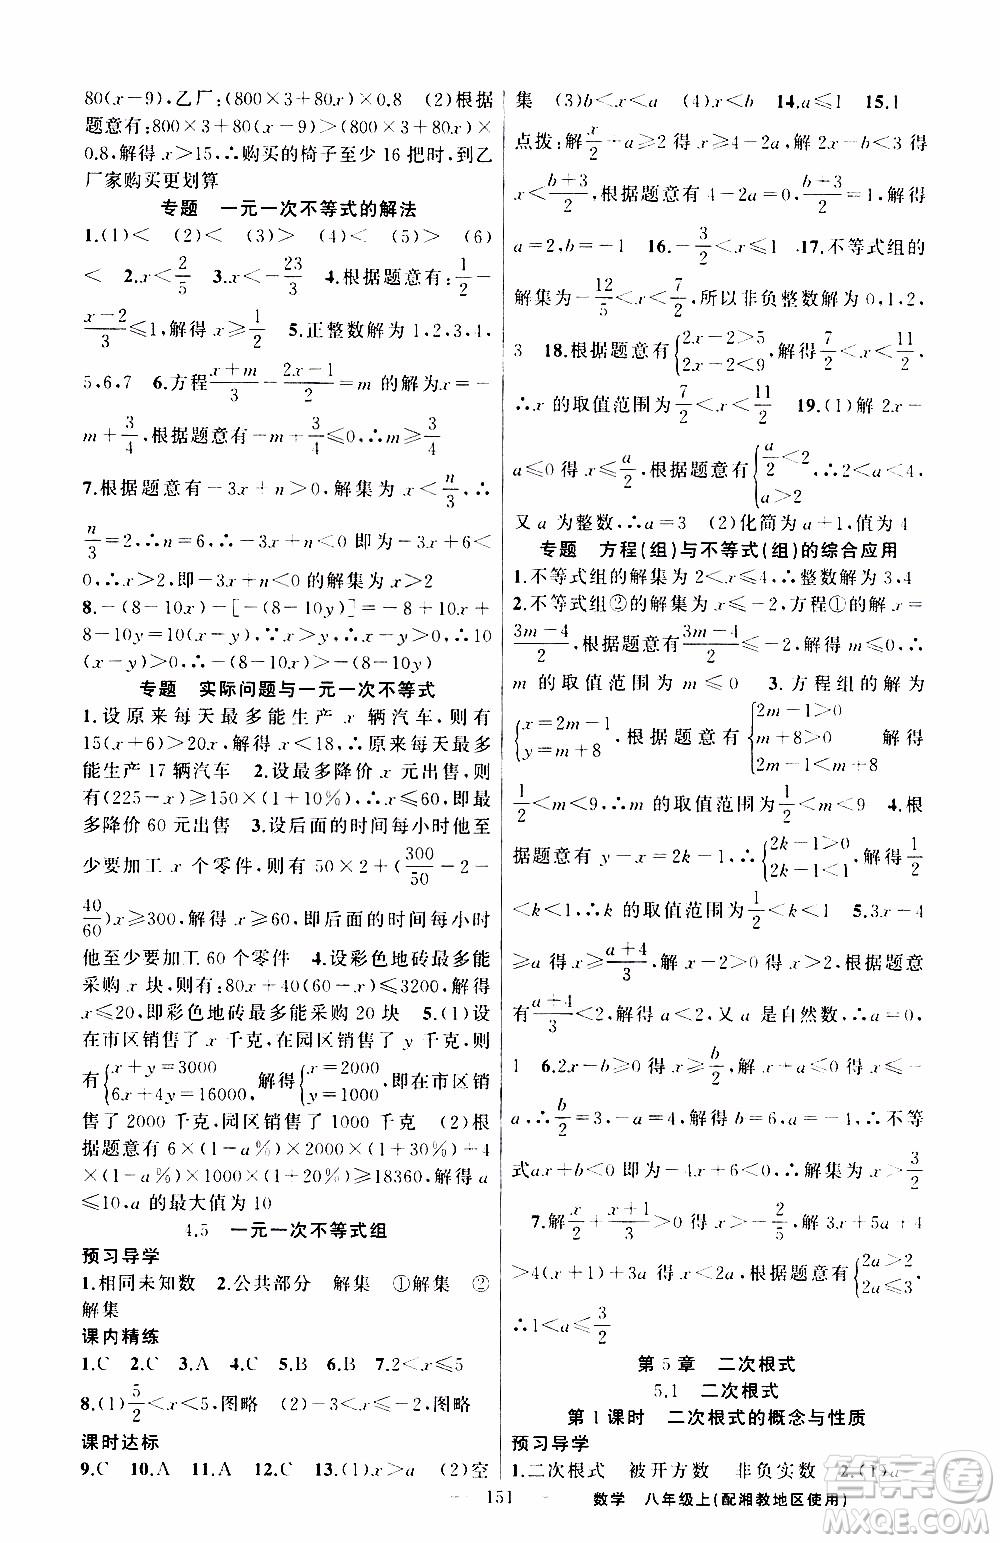 80(x−9),乙厂:(800×3+80x)×0.8　(2)根据
题意有:800×3+80(x−9)>(800×3+80x)×
0.8,解得 x>15,∴购买的椅子至少 16 把时,到乙
厂家购买更划算
专题　一元一次不等式的解法
1.(1)<　(2)<　(3)>　(4)<　(5)>　(6)
<　2.x<2/5　3.x<−23/3　4.根据题意有:1/2−
(x−2)/3≤1,解得 x≥1/2　5.正整数解为 1,2,3,4,
5,6,7　6.方程(x+m)/3−(2x−1)/2=m 的解为 x=−
m+3/4,根据题意有−m+3/4≤0,∴m≥3/4
7.根据题意有−3x+n>0,解集为 x<n/3,∴
n/3=2,∴n=6,∴−3x+n<0 即为−3x+6<
0,∴x>2,∴−3x+n<0的解集为 x>2
8.−(8−10x)−[−(8−10y)]=−8+10x+
8−10y=10(x−y),∵x>y,∴x−y>0,∴10
(x−y)>0,∴−(8−10x)>−(8−10y)
专题　实际问题与一元一次不等式
1.设原来每天最多能生产 x 辆汽车,则有
15(x+6)>20x,解得 x<18,∴原来每天最多
能生产 17 辆汽车　2.设最多降价 x 元出售,则
有(225−x)≥150×(1+10%),∴x≤60,即最
多降价 60 元出售　3.设后面的时间每小时他至
少要加工 x 个零件,则有 50×2+(300/50−2−
40/60)x≥300,解得 x≥60,即后面的时间每小时
他至少要加工 60 个零件　4.设彩色地砖最多能
采购 x 块,则有:80x+40(60−x)≤3200,解得
x≤20,即彩色地砖最多能采购 20 块　5.(1)设
在市区销售了 x 千克,在园区销售了 y 千克,则
有{x+y=3000 6x+4y=16000　解得{x=2000 y=1000,即在市区销
售了 2000 千克,园区销售了 1000 千克　(2)根
据题意有 6×(1−a%)×2000×(1+30%)+4
×(1−a%)×1000×(1+30%)≥18360,解得 a
≤10,a 的最大值为 10
4.5　一元一次不等式组
预习导学
1.相同未知数　2.公共部分　解集　①解集　②
解集
课内精练
1.C　2.C　3.A　4.C　5.B　6.B　7.2<x≤5
8.(1)5/2<x<5,图略　(2)−3<x≤2,图略
课时达标
9.C　10.A　11.A　12.C　13.(1)x>a　(2)空
集　(3)b<x<a　(4)x<b　14.a≤1　15.1
点拨:解x/2−a≥2 得 x≥4+2a,解 2x−b<3 得
x<(b+3)/2,根据题意有 4−2a=0,(b+3)/2=1,解得
a=2,b=−1　16.−3/2<x≤1　17.不等式组的
解集为−12/5<x≤7/2,所以非负整数解为 0,1,2,
3　18.根据题意有{2x−2>5 2x−2<9,解得7/2<x<11/2,
∴x 的取值范围为7/2<x<11/2　19.(1)解 2x−
a≤0 得 x≤a/2,根据题意有{a/2<2 a>2,∴2<a<4,
又 a 为整数,∴a=3　(2)化简为 a+1,值为 4
专题　方程(组)与不等式(组)的综合应用
1.不等式组的解集为 2<x≤4,∴整数解为 3,4
2.不等式组②的解集为 x≤−2,方程①的解为
(3m−4)/2,根据题意有(3m−4)/2≤−2,解得 m≤0,∴
m 的取值范围为 m≤0　3.方程组的解为
{x=2m−1 y=m+8,根据题意有{2m−1>0 m+8>0 2m−1<m+8　解得
1/2<m<9,∴m 的取值范围为1/2<m<9　4.根
据题意有 y−x=2k−1,∴{2k−1>0 2k−1<1,解得1/2
<k<1,∴k 的取值范围为1/2<k<1　5.3x−4
≥a 的解集为 x≥(a+4)/3,根据题意
有(a+4)/3<2,解得 a<2,又 a 是自然数,∴a=0,
1　6.2x−b≥0 得 x≥b/2,解 x+a≤0 得 x≤−
a,∴b/2=3,−a=4,解得 b=6,a=−4,∴不等
式ax+b<0 为−4x+6<0,∴解集为 x>3/2
7.解x/2+(x+1)/3>0 得 x>−2/5,解 3x+5a+4
>4(x+1)+3a 得 x<2a,根据题意有{2a>2 2a≤3,
∴1<a≤3/2
第 5 章　二次根式
5.1　二次根式
第 1 课时　二次根式的概念与性质
预习导学
1.二次根式　被开方数　非负实数　2.(1)a
151　数学　八年级上(配湘教地区使用)
答案
MXQE.COM